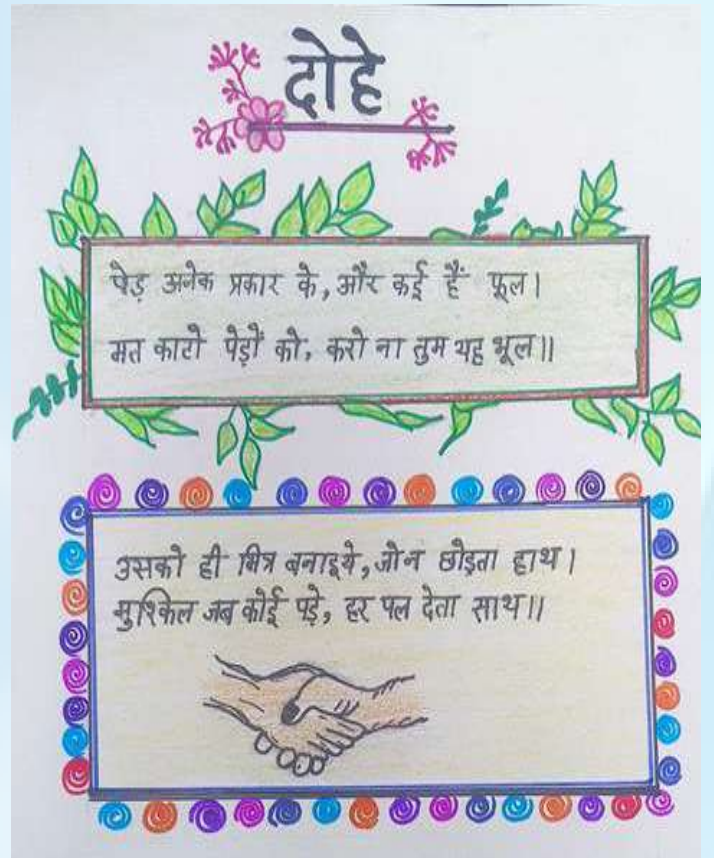 दोहे
पेड़ अनेक प्रकार के, और कई हैं फूल।
मत काटो पेड़ों को, करो ना तुम यह भूल॥
उसको ही मित्र बनाइये, जो न छोड़ता हाथ।
मुश्किल जब कोई पड़े, हर पल देता साथ॥